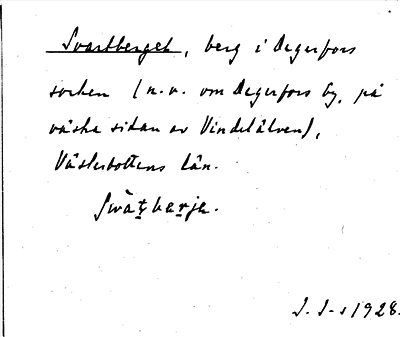 Svartberget, berg i Degerfors
socken (n.v. om Degerfors by, på
västra sidan av Vindelälven),
Västerbottens län.
Swàṭbaṛje.
J. J-s 1928.